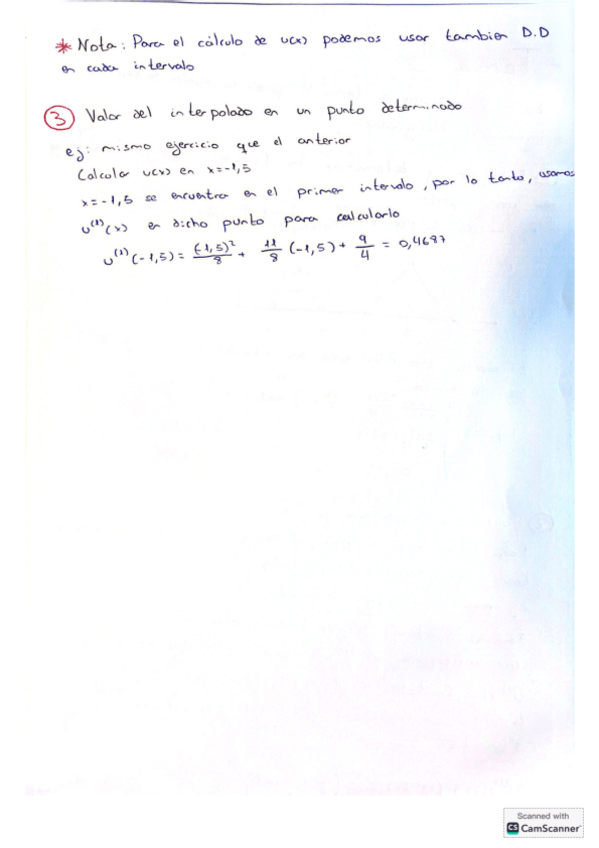 * Nota: Para el cálculo de u(x) podemos usar tambien D.D
en cada intervalo
③ Valor del interpolado en un punto determinado
ej: mismo ejercicio que el anterior
Calcula u(x) en x=-1,5
x=-1,5 se encuentra en el primer intervalo, por lo tanto, usamos
u⁽¹⁾(x) en dicho punto para calcularlo
u⁽¹⁾(-1,5) = (-1,5)²/8 + 11/8 (-1,5) + 9/4 = 0,4687
Scanned with
CS CamScanner